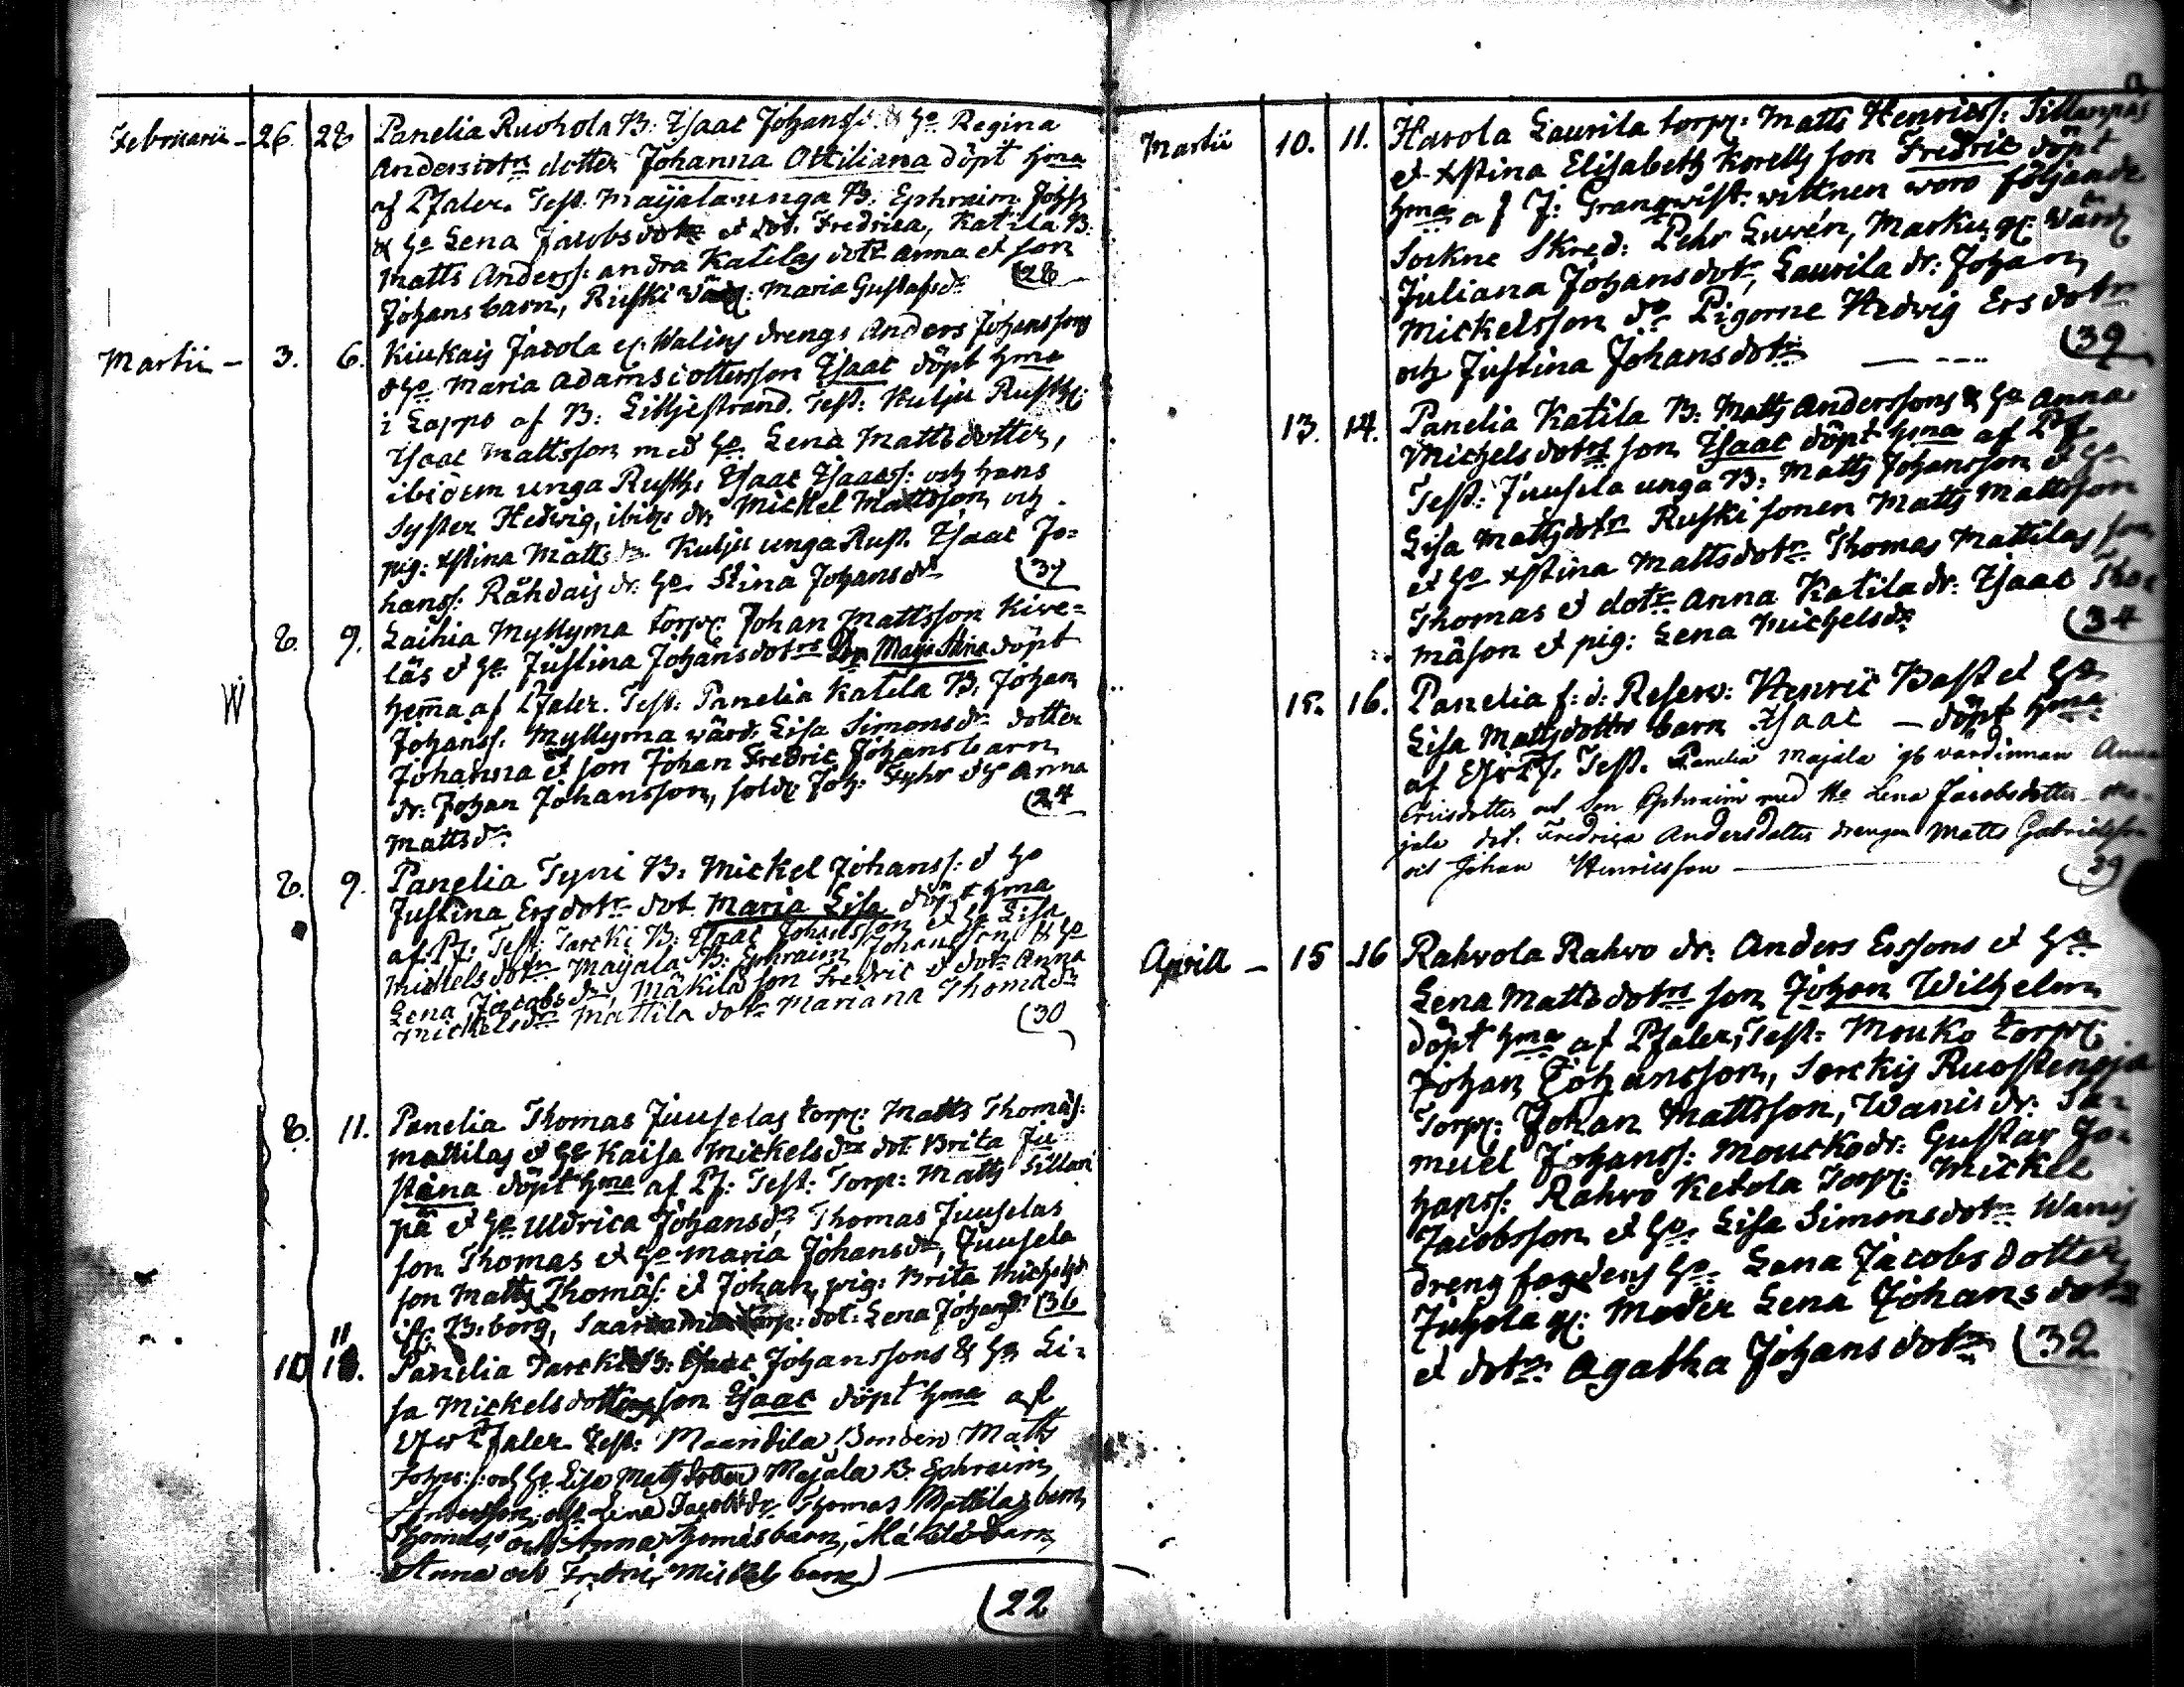 Februarii - 26. 28 Panelia Ruohola B: Isaac Johanss: & ho Regina
Andersdotrs dotter Johanna Ottiliana döpt hma
af Pfaler. Test. Maijala unga B. Ephraim Johss
& ho Lena Jacobsdotr et dot. Fredrica, Katila B.
Matts Anderss: andra Katilas dotr Anna et son
Johans barn, Ruski värd: Maria Gustafsdr (28
Martii - 3. 6. Kiukais Jacola Walins drengs Anders Johanssons
& ho Maria Adamsdotters son Isaac döpt hma
i Lappo af B: Lilljestrand. Test: Kulju Rusth:
Isaac Mattsson med ho Lena Mattsdotter,
ibidem unga Rusth. Isaac Isaacs: och hans
syster Hedwig, ibid: dr Mickel Mattsson och
pig: Xstina Matts dr Kulju unga Rust. Isaac Jo=
hanss: Råhdais dr: ho Stina Johansdr (37
8. 9. Laihia Myllyma torp: Johan Mattsson Kive=
läs et ho Justina Johansdotrs Maja Stina döpt
hema af Pfaler. Test: Panelia Katila B. Johan
W
Johanss. Myllyma värd: Lisa Simonsdr dotter
Johanna et son Johan Fredric Johans barn
dr: Johan Johansson, sold: Joh: Fyhr & ho Anna
Mattsdr. (24
8. 9. Panelia Tyni B: Mickel Johanss: et ho
Justina Ersdotrs dot. Maria Lisa döpt hma
af Pf: Test: Tarcki B: Isaac Johansson et ho Lisa
Mickelsdotr Maijala B: Ephraim Johansson & ho
Lena Jacobsdr, Mäkilä son Fredric et dotr Anna
Mickelsdr Mattila dotr Mariana Thomadr
(30
8. 11. Panelia Thomas Juuselas torp: Matts Thomäs:
Mattilas et ho Kaisa Mickelsdrs dot. Brita Ju
stina döpt hma af Pf: Test: Torp: Matts Sillan
pä et ho Uldrica Johansdr Thomas Juuselas
son Thomas et ho Maria Johansdr, Juusela
son Matts Thomäs: et Johan, pig: Brita Michelsdr
B:borg, dot: Lena Johansdr (36
11
10 Panelia Tarcki B: Isaac Johanssons & ho Li=
sa Mickelsdotters son Isaac döpt hma af
Pfaler Test: Maandila Bonden Matts
Johns: och ho Lisa Mattsdotter Majala B. Ephraim
Andersson, och Lena Jacobsdr Thomas Mattilas barn
Thomas, och Anna Thomäsbarn, Mäkilä barn
Anna och Fredric Mickels barn
(22
Martii 10. 11. Harola Laurila torp: Matts Henricss: Sillanpäs
et Xstina Elisabeth Korells son Fredric döpt
hma af J: Granqwist. wittnen woro följande
Sockne Skred: Pehr Luwén, Marku värd
Juliana Johansdotr, Laurila dr: Johan
Mickelsson do Pigorne Hedwig Ersdotr
och Justina Johansdotr (39
13. 14. Panelia Katila B: Matts Anderssons & ho Anna
Michelsdotrs son Isaac döpt hma af Pf.
Test: Juusela unga B: Matts Johansson et ho
Lisa Mattsdotr Ruski sonen Matts Mattsson
et ho Xstina Mattsdotr Thomas Mattilas son
Thomas et dotr Anna Katila dr: Isaac Tho
mäson et pig: Lena Michelsdr (34
15. 16. Panelia f: d: Reserv: Henric Bast et ho
Lisa Mattsdotrs barn Isaac — döpt hma
af Pf. Test. Panelia Majala värdinnan Anna
Ericsdotter och son Ephraim med Ho Lena Jacobsdotter Ma-
jala dot. Fredrica Andersdotter drengen Matts Gabrielsson
och Johan Henricsson (29
April - 15 16 Rahvola Rahvo dr: Anders Erssons et ho
Lena Mattsdotrs son Johan Wilhelm
döpt hma af Pfaler, Test: Mouko torp:
Johan Johansson, Sorckis Ruostenoja
Torp: Johan Mattsson, Wanis dr: Sa=
muel Johanss: Mouckodr: Gustav Jo=
hanss: Rahvo Ketola Torp: Mickel
Jacobsson et ho Lisa Simonsdotr Wanis
dreng fogdens ho Lena Jacobsdotter
Juhola Moder Lena Johansdotr
et dotr Agatha Johansdotr (32